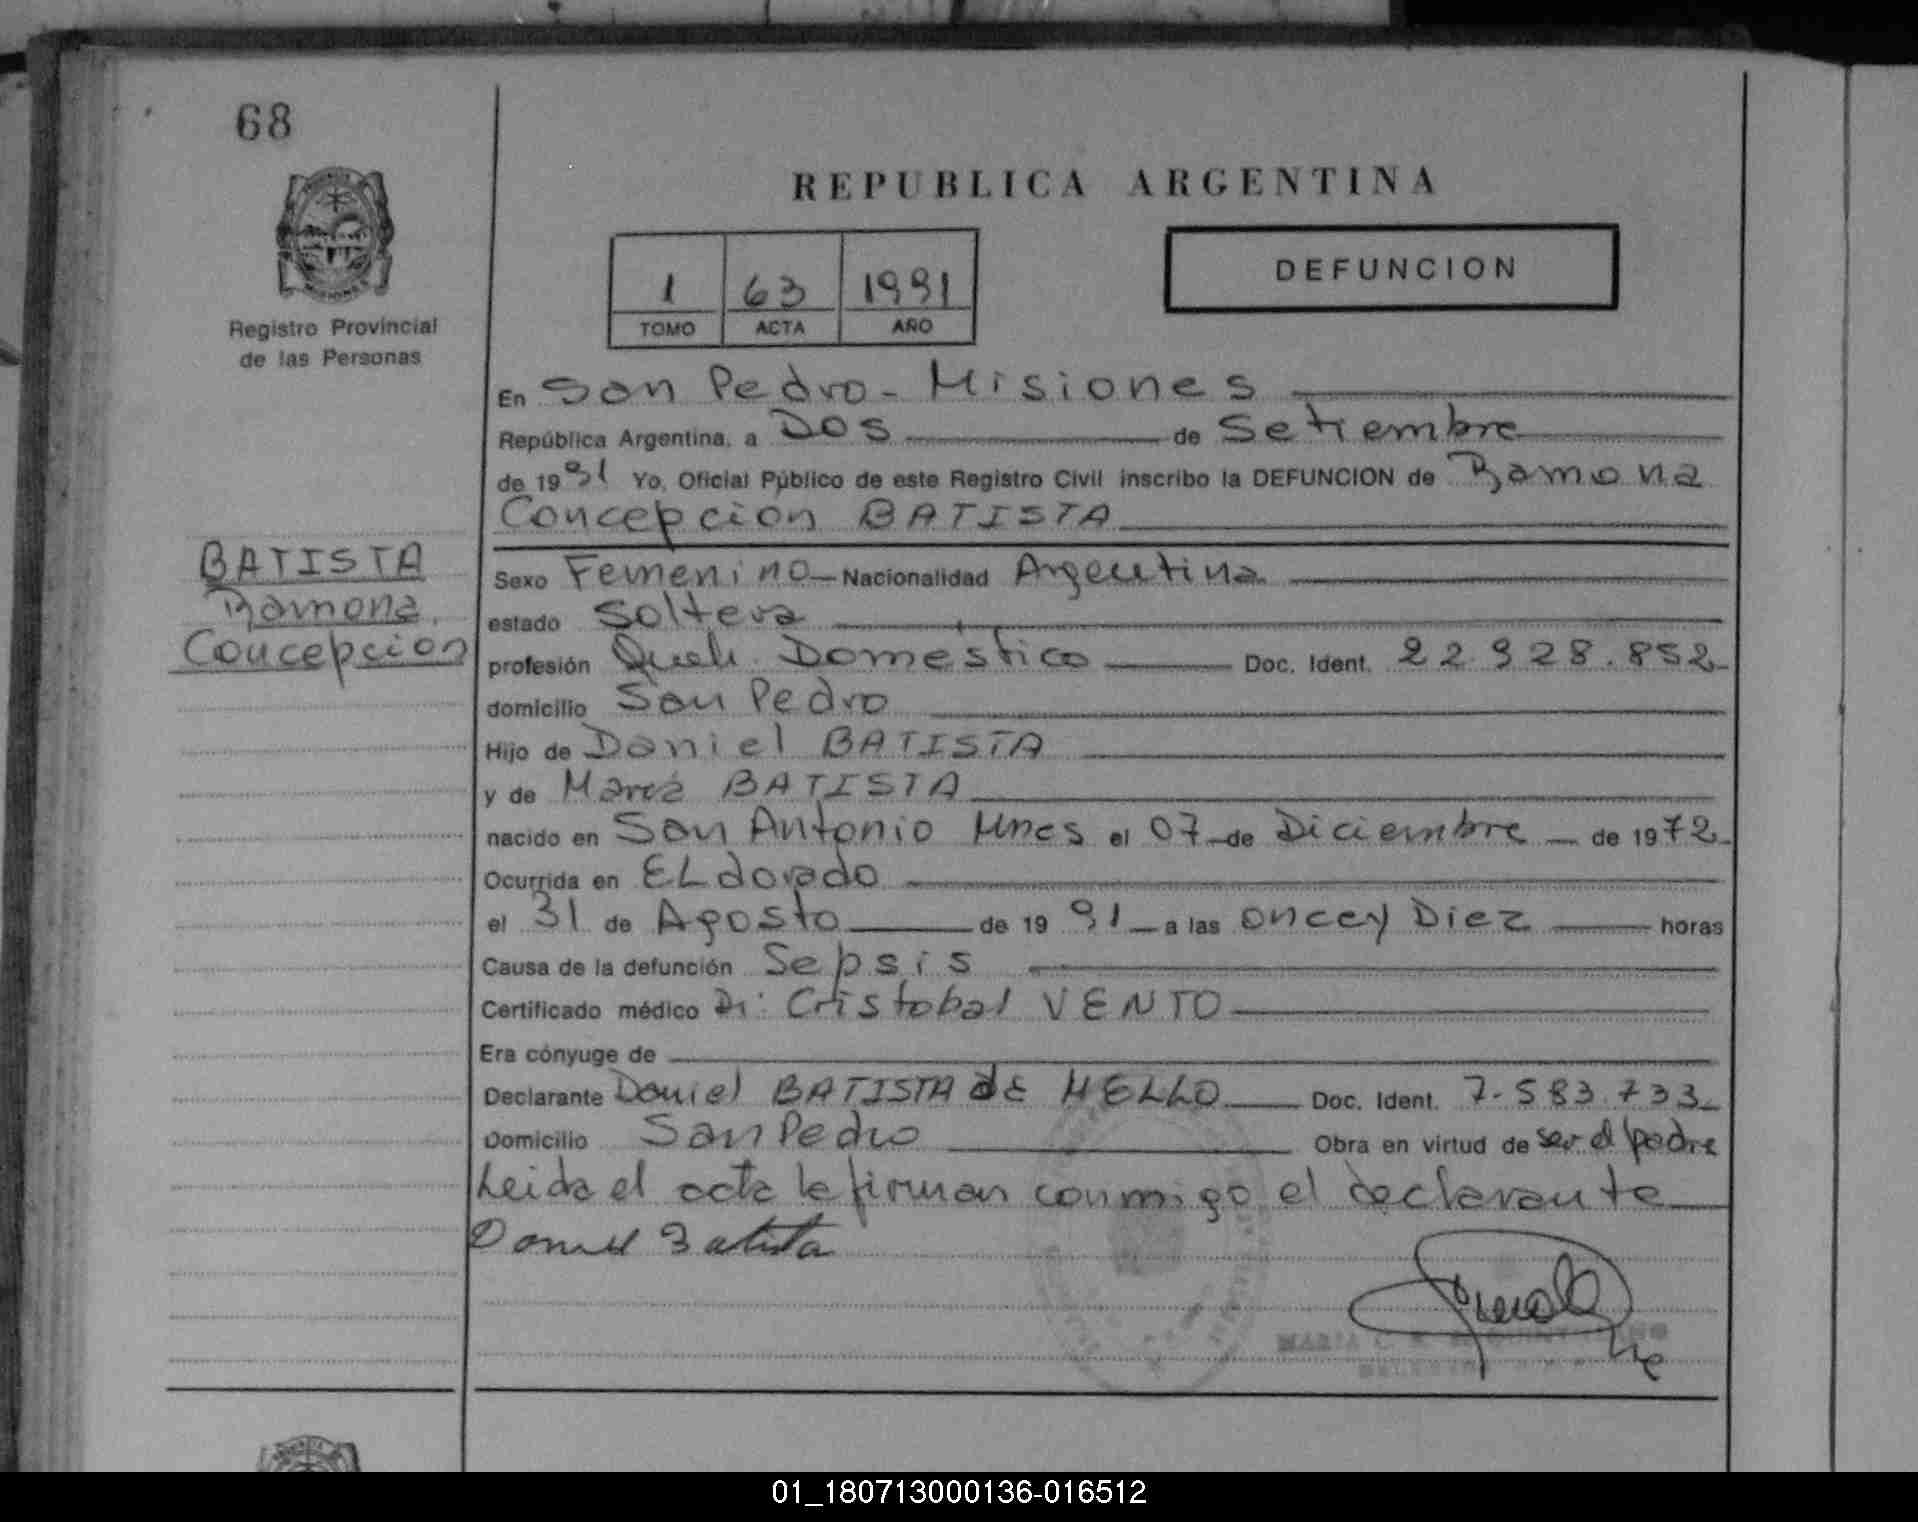 68
MISIONES
Registro Provincial
de las Personas
REPUBLICA ARGENTINA
1 63 1991
TOMO ACTA AÑO
DEFUNCION
En San Pedro - Misiones
República Argentina, a Dos de Setiembre
de 1991 Yo, Oficial Público de este Registro Civil inscribo la DEFUNCION de Ramona
Concepcion BATISTA
BATISTA
Ramona
Concepcion
Sexo Femenino Nacionalidad Argentina
estado Soltera
profesión Queh. Domestico Doc. Ident. 22.928.852
domicilio San Pedro
Hijo de Daniel BATISTA
y de María BATISTA
nacido en San Antonio Mnes el 07 de Diciembre de 1972
Ocurrida en ELdorado
el 31 de Agosto de 1991 a las once y Diez horas
Causa de la defunción Sepsis
Certificado médico Dr: Cristobal VENTO
Era cónyuge de
Declarante Daniel BATISTA de MELLO Doc. Ident. 7.583.733
Domicilio San Pedro Obra en virtud de ser el padre
Leida el acta la firman conmigo el declarante
Daniel Batista
MARIA
01_180713000136-016512